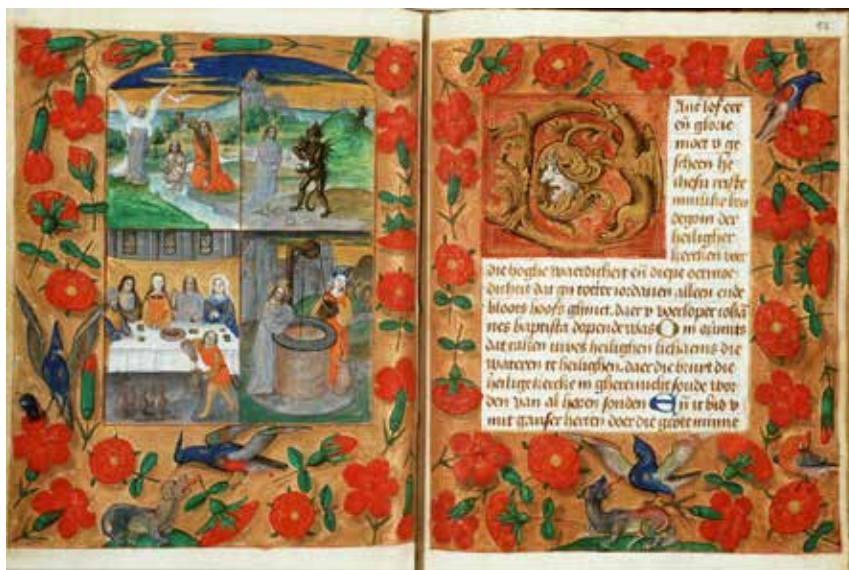 DAnc lof eer
eñ glorie
moet v ge
scheen he
ihesu criste
minlike bru
degom der
heiligher
kerken voer
die hoghe waerdicheit eñ diepe oetmoe
dicheit dat gij totter iordanen alleen ende
bloots hoofs ghinct. daer v voerloper iohã
nes baptista dopende was Om
dat raken uwes heilighen lichaems die
wateren te heilighen. daer die bruyt die
heilige kercke in ghereinicht soude wor
den van al haren sonden Eñ ic bid v
mit gansser herten doer die